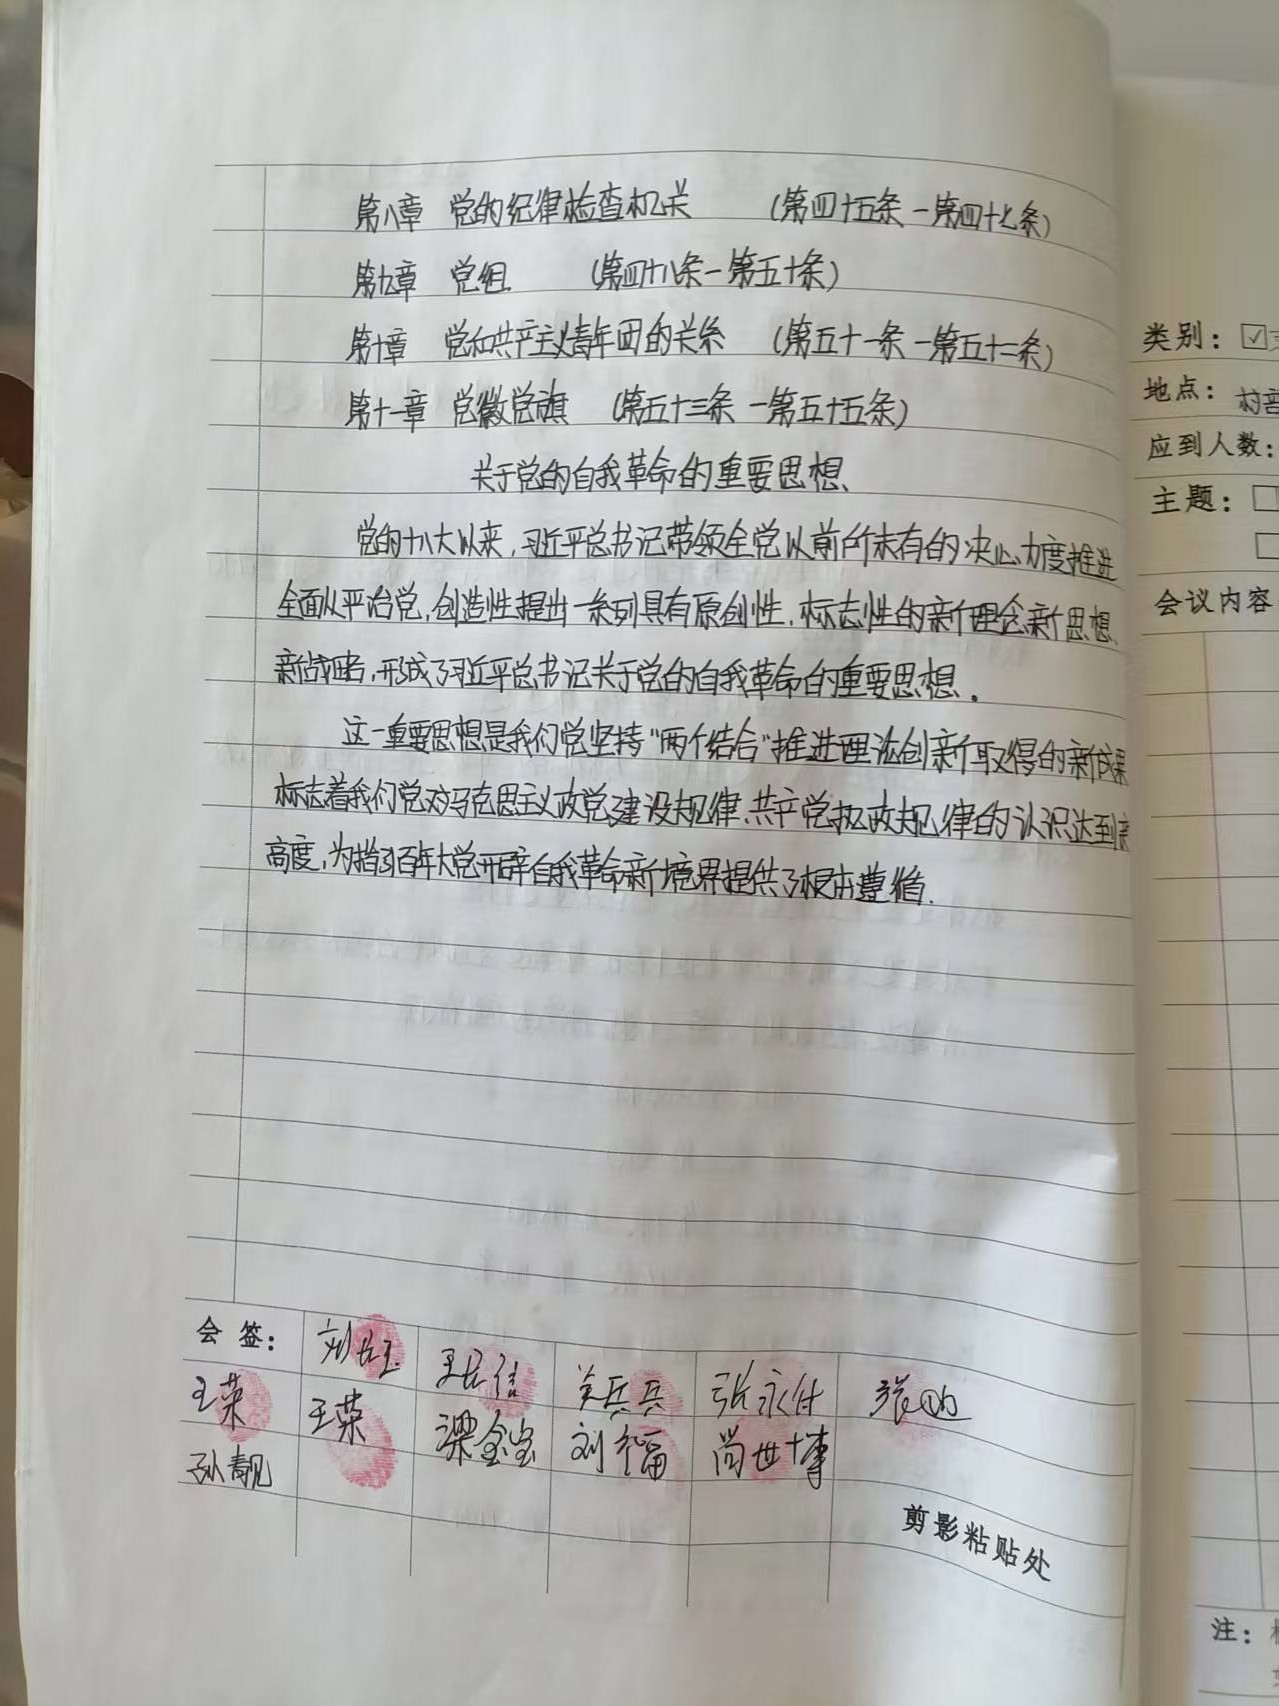 第八章 党的纪律检查机关 (第四十五条-第四十七条)
第九章 党组 (第四十八条-第五十条)
第十章 党和共产主义青年团的关系 (第五十一条-第五十二条)
第十一章 党徽党旗 (第五十三条-第五十五条)
关于党的自我革命的重要思想、
党的十八大以来,习近平总书记带领全党以前所未有的决心力度推进
全面从严治党,创造性提出一系列具有原创性,标志性的新理念新思想、
新战略,形成了习近平总书记关于党的自我革命的重要思想。
这一重要思想是我们党坚持“两个结合”推进理论创新取得的新成果
标志着我们党对马克思主义政党建设规律、共产党执政规律的认识达到新
高度,为指引百年大党开辟自我革命新境界提供了根本遵循.
会签:
王荣 王荣 梁金宝 刘 张永仕
孙靓
剪影粘贴处
类别:☑
地点:村
应到人数:
主题:□
□
会议内容
注: